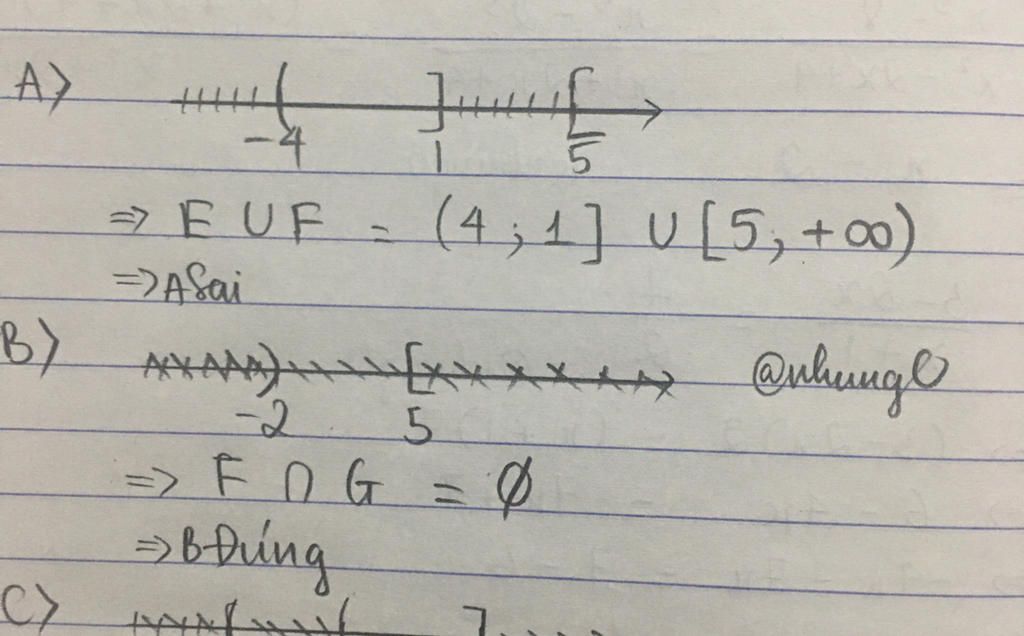 A)
-4 1 5
=> E ∪ F = (4 ; 1] ∪ [5, +∞)
=> A Sai
B)
@nhungl
-2 5
=> F ∩ G = Ø
=> B Đúng
C)